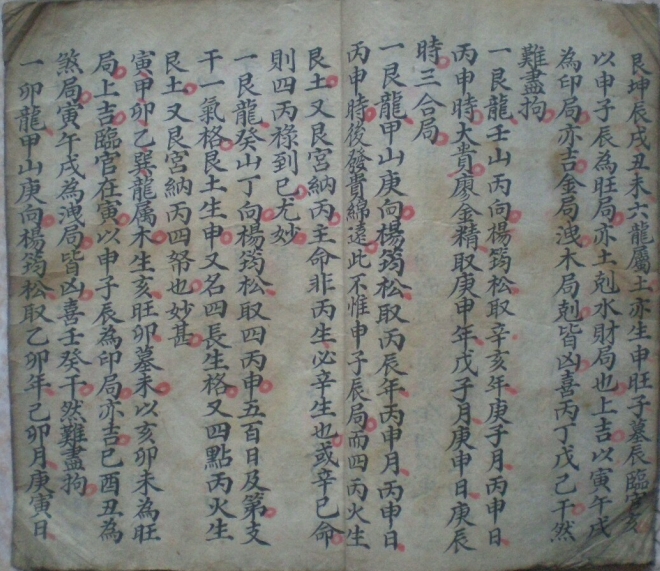 艮坤辰戌丑未六龍屬土亦生申旺子墓辰臨官亥
以申子辰為旺局亦土剋水財局也上吉以寅午戌
為印局亦吉金局洩木局剋皆凶喜丙丁戊己干然
難盡拘
一艮龍壬山丙向楊筠松取辛亥年庚子月丙申日
丙申時大貴廖金精取庚申年戊子月庚申日庚辰
時三合局
一艮龍甲山庚向楊筠松取丙辰年丙申月丙申日
丙申時後發貴綿遠此不惟申子辰局而四丙火生
艮土又艮宮納丙主命非丙生必辛生也或辛巳命
則四丙祿到巳尤妙
一艮龍癸山丁向楊筠松取四丙申五百日及第支
干一氣格艮土生申又名四長生格又四點丙火生
艮土又艮宮納丙四帑也妙甚
寅甲卯乙巽龍属木生亥旺卯墓未以亥卯未為旺
局上吉臨官在寅以申子辰為印局亦吉巳酉丑為
煞局寅午戌為洩局皆凶喜壬癸干然難盡拘
一卯龍甲山庚向楊筠松取乙卯年己卯月庚寅日